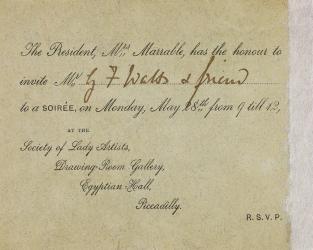 The President, Mrs. Marrable, has the honour to
invite Mr. G F Watts & friend
to a SOIRÉE, on Monday, May 28th from 9 till 12,
AT THE
Society of Lady Artists,
Drawing-Room Gallery,
Egyptian Hall,
Piccadilly.
R.S.V.P.